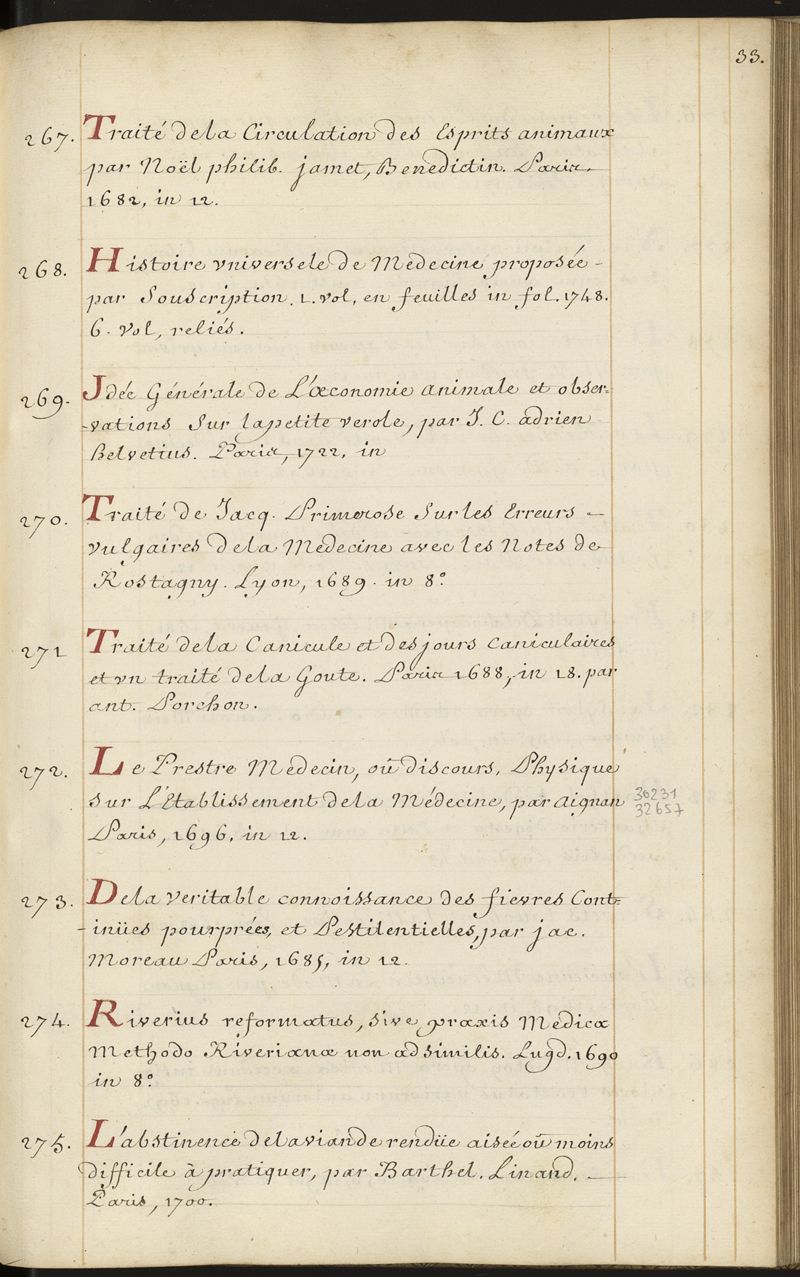 33.
267. Traité de la Circulation des Esprits animaux
par Noël philib. jamet, Benedictin. Paris.
1682, in 12.
268. Histoire vniversele de Medecine proposée -
par Souscription. 1. vol, en feuilles in fol. 1748.
6. vol, reliés.
269. Jdée Générale de L'œconomie animale et obser-
-vations Sur la petite verole, par J. C. adrien
helvetius. Paris, 1722, in
270. Traité de Jacq. Primerose Sur les Erreurs -
vulgaires de la Medecine avec les Notes de
Rostagny. Lyon, 1689. in 8.°
271 Traité de la Canicule et des jours Caniculaires
et vn traité de la Goute. Paris 1688, in 18. par
ant. Porchon.
272. Le Prestre Medecin, oû discours, Physique
Sur L'Etablissement de la Médecine, par aignan
30231
32657
Paris, 1696, in 12.
273. De la veritable connoissance des fievres Cont=
-inües pourprées, et Pestilentielles, par jac.
Moreau Paris, 1685, in 12.
274. Riverius reformatus, sive praxis Medicæ
Methodo Riverianæ non adsimilis. Lugd. 1690
in 8.°
275. L'abstinence de la viande rendüe aisée oû moins
difficile à pratiquer, par Barthel. Linand. -
Paris, 1700.